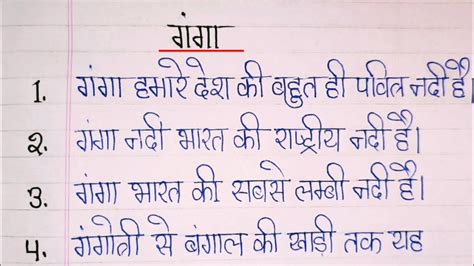 गंगा
1. गंगा हमारे देश की बहुत ही पवित्र नदी है।
2. गंगा नदी भारत की राष्ट्रीय नदी है।
3. गंगा भारत की सबसे लम्बी नदी है।
4. गंगोत्री से बंगाल की खाड़ी तक यह